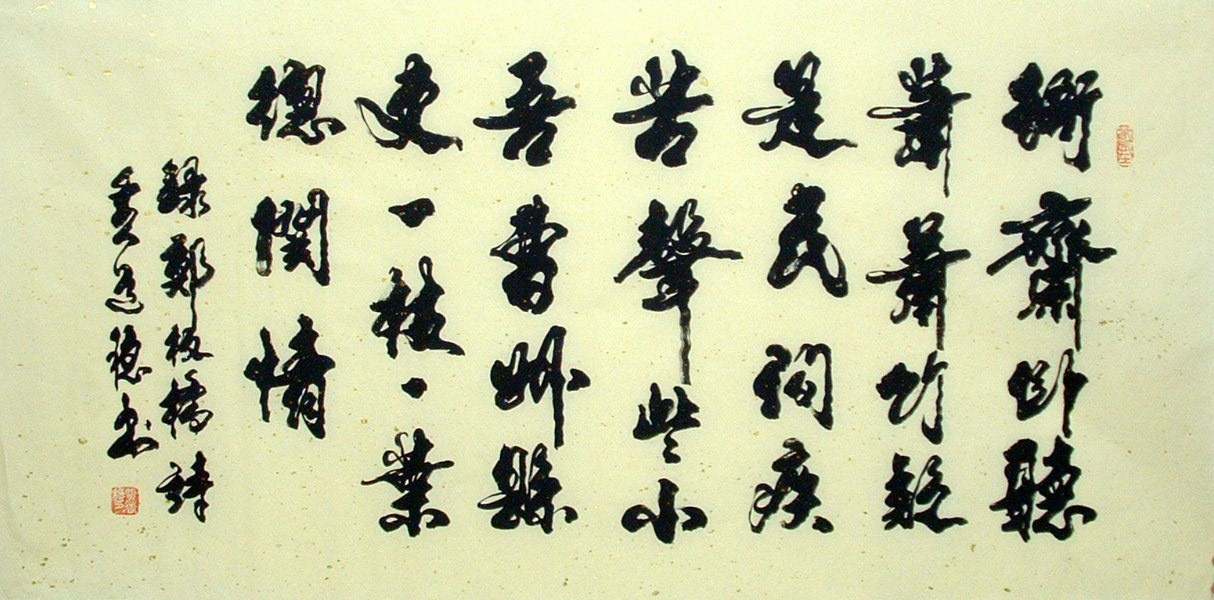 衙齋卧聽
蕭蕭竹疑
是民間疾
苦聲些小
吾曹州縣
吏一枝一葉
總關情
錄鄭板橋詩
书